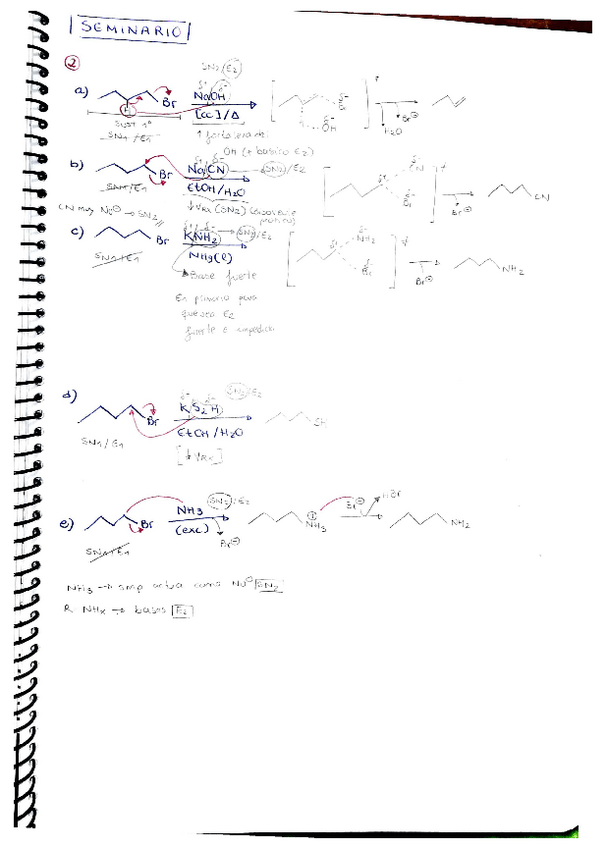 SEMINARIO
2
SN2/E2
a) Br NaOH
[cc]/Δ
H
Sust 1º
SN1/E1
OH (+ básico E2)
H2O Br⊖
b) Br NaCN SN2/E2
EtOH/H2O
SN1/E1
CN
Br⊖
CN muy Nu⊖ → SN2
↓VRx (SN2)
c) Br KNH2 SN2/E2
NH3(l)
SN1/E1
NH2
Br⊖
Base fuerte
En primario para
que sea E2
fuerte e impedida
d) Br KS2H SN2/E2
EtOH/H2O
SN1/E1
[↓VRx]
SH
e) Br NH3 SN2/E2
(exc)
Br⊖
NH3
Br⊖
HBr
NH2
SN1/E1
NH3 → smp actúa como Nu⊖ SN2
R NHx → bases E2